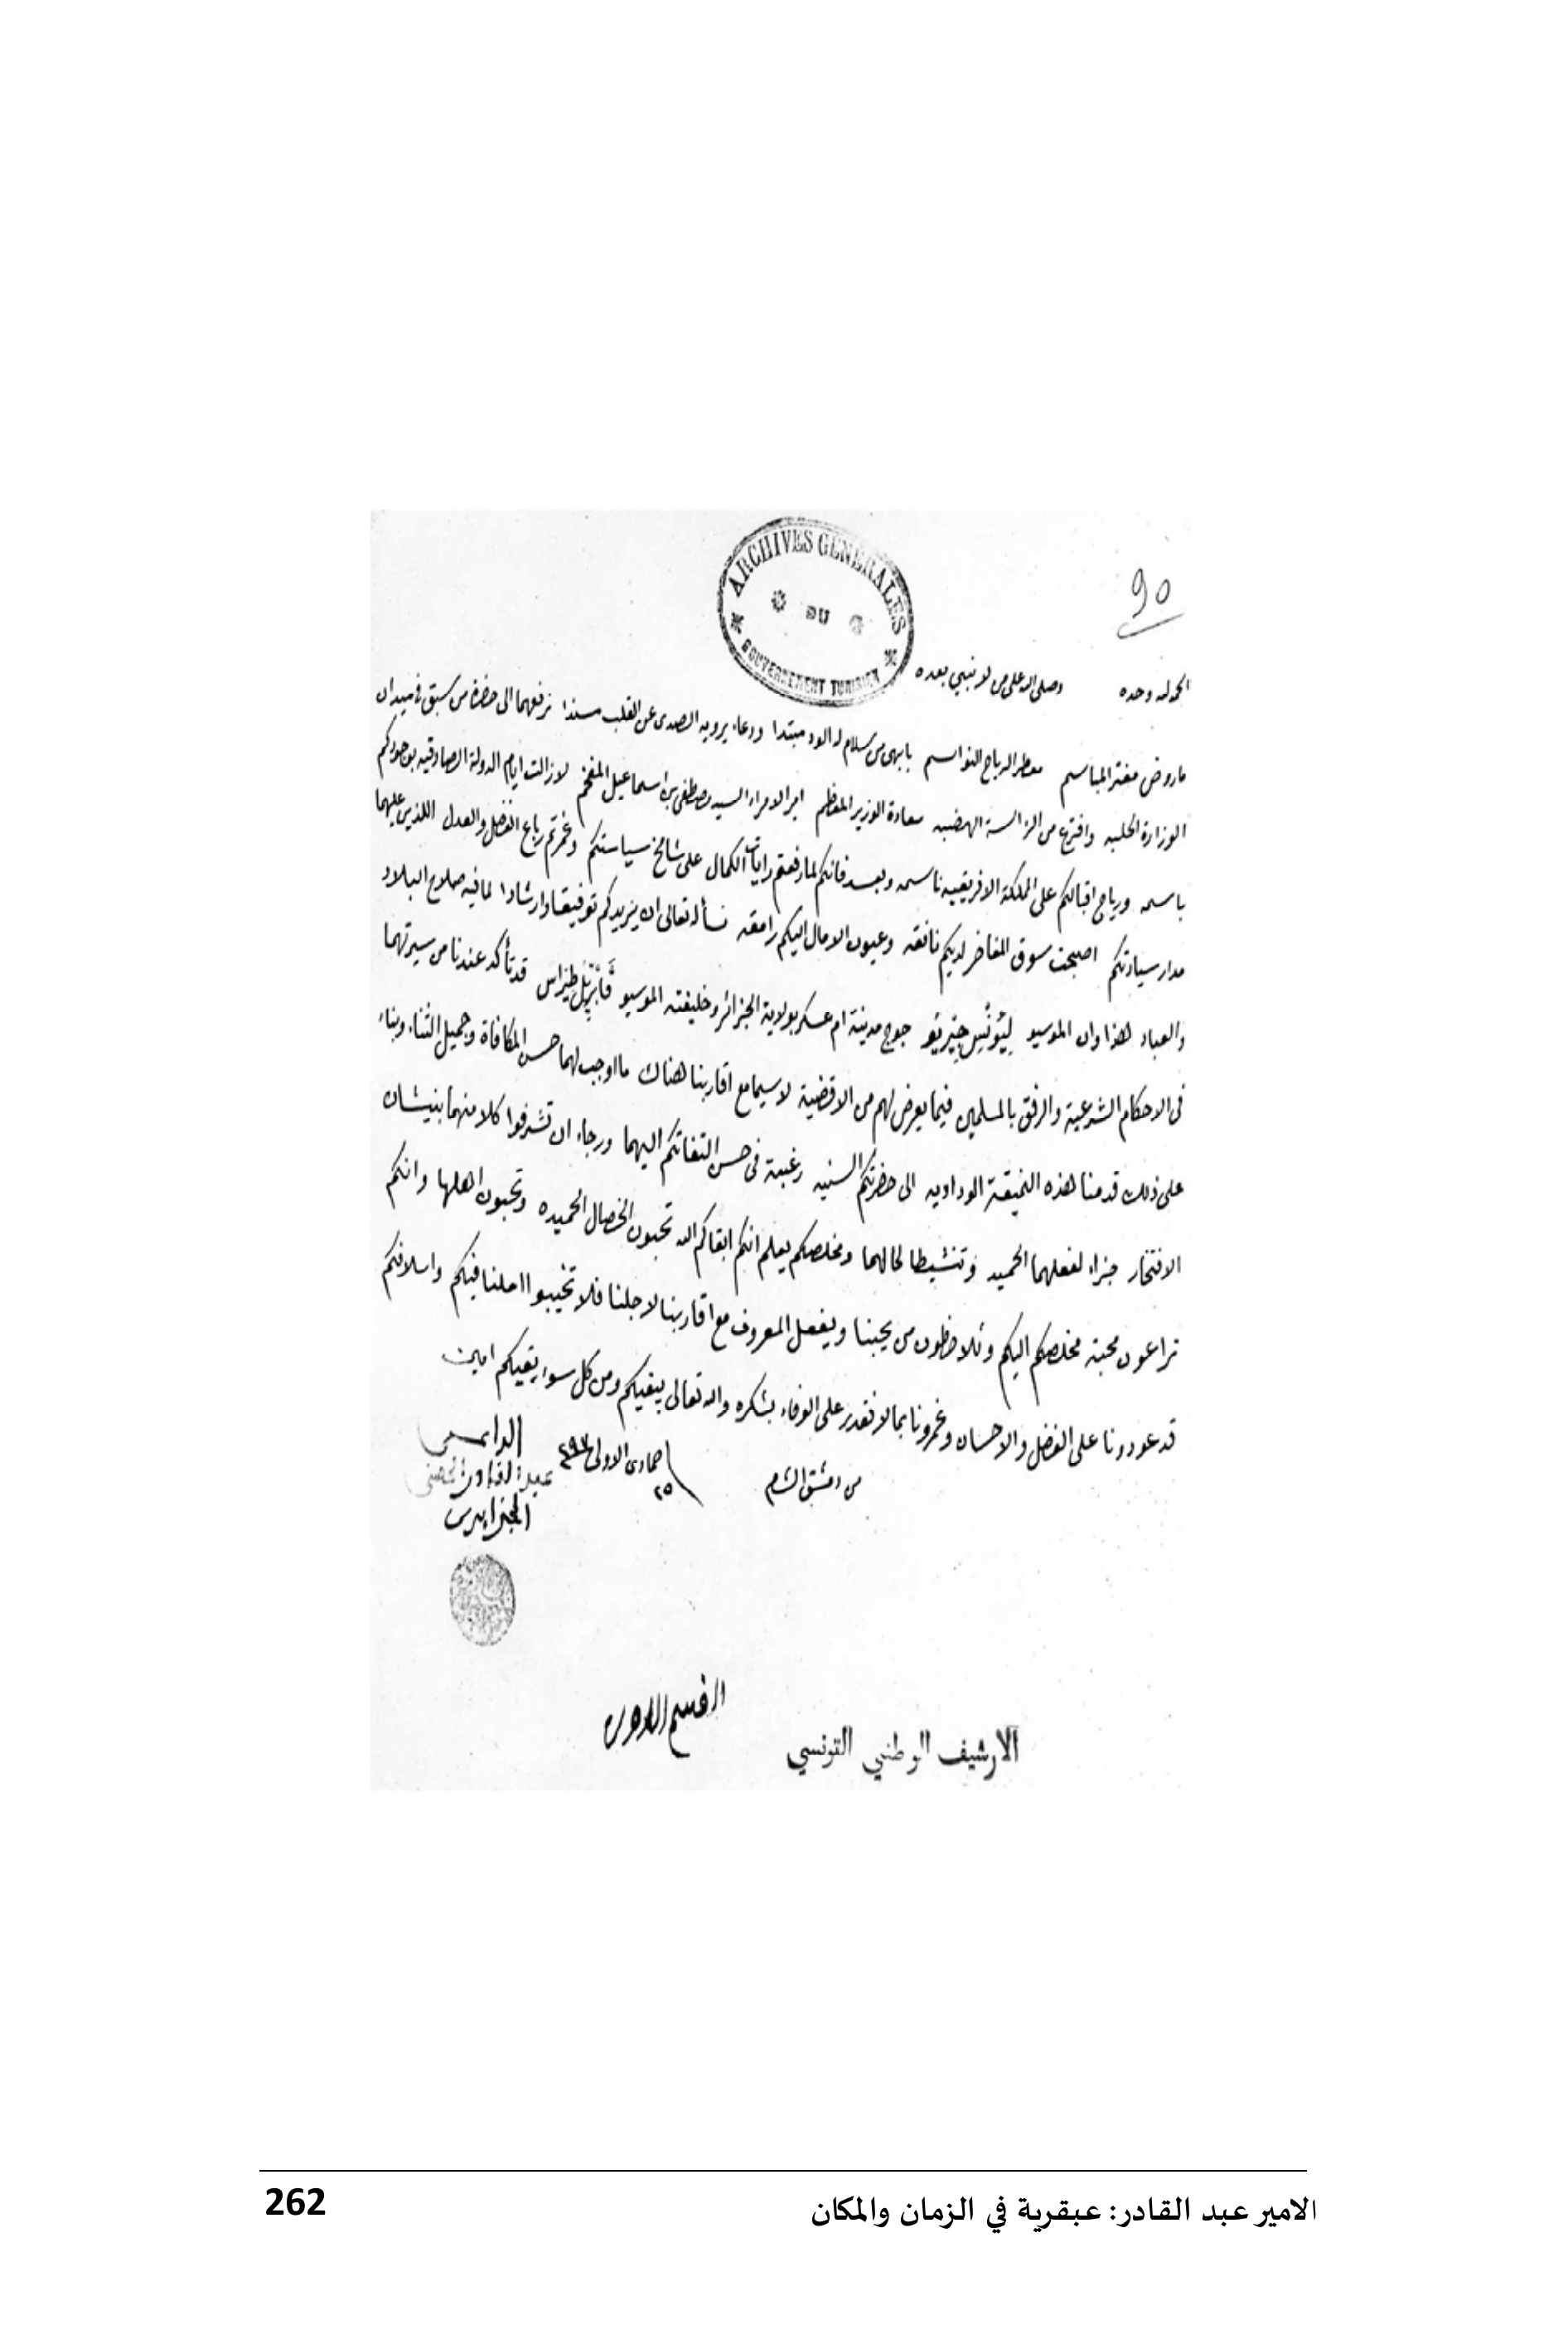 90
ARCHIVES GENERALES
DU
GOUVERNEMENT TUNISIEN
الحمد لله وحده وصلى الله على من لا نبي بعده
ما روض مفتر المباسم معطر الرياح النواسم بابهى من سلام له الود مبتدا ودعاء يرويه الصدق عن القلب مسندا نرفعهما الى حضرة من سبق في ميدان
الوزارة الحلبه وافترع من الهضبه سعادة الوزير المعظم امير الامراء السيد مصطفى بن اسماعيل المفخم لا زالت ايام الدولة الصادقيه بوجودكم
باسمه ورياح اقبالكم على المملكة الافريقيه ناسمه وبعد فانكم لما رفعتم رايات الكمال على شامخ سياستكم وعمرتم رباع الفضل والعدل اللذين عليهما
مدار سيادتكم اصبحت سوق المفاخر لديكم نافقه وعيون الامال اليكم رامقه نسأله تعالى ان يزيدكم توفيقا وارشادا لما فيه صلاح البلاد
والعباد هذا وان الموسيو جوج مدينة ام عسكر بولاية الجزائر وخليفته الموسيو قد تأكد عندنا من سيرتهما
في الاحكام الشرعية والرفق بالمسلمين فيما يعرض لهم من الاقضية لاسيما مع اقاربنا هناك ما اوجب لهما حسن المكافاة وجميل الثناء وبناء
على ذلك قدمنا هذه النميقة الوداديه الى حضرتكم السنيه رغبة في حسن التفاتكم اليهما ورجاء ان تشرفوا كلا منهما بنيشان
الافتخار جزاء لفعلهما الحميد وتنشيطا لحالهما ومخلصكم يعلم انكم ابقاكم الله تحبون الخصال الحميده وتحبون اهلها وانكم
تراعون محبة مخلصكم اليكم وتلاحظون من يحبنا ويفعل المعروف مع اقاربنا لاجلنا فلا تخيبوا املنا فيكم واسلافكم
قد عودونا على الفضل والاحسان وغمرونا بما لا نقدر على الوفاء بشكره والله تعالى يبقيكم ومن كل سوء يقيكم امين
من دمشق الشام ٢٥ جمادى الاولى ٢٩٧
الداعي
عبد القادر الحسني
الجزايري
الارشيف الوطني التونسي
262
الامير عبد القادر: عبقرية في الزمان والمكان